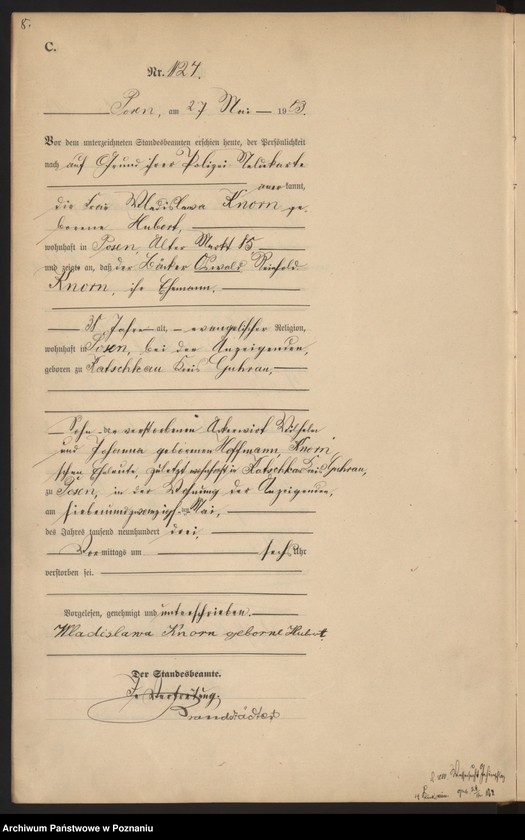 8.
C.
Nr. 1127.
Posen, am 27 Mai 1903.
Vor dem unterzeichneten Standesbeamten erschien heute, der Persönlichkeit
nach auf Grund ihrer Polizei Meldekarte
anerkannt,
die Frau Wladislawa Knorn ge-
borene Hubert,
wohnhaft in Posen, Alter Markt 15
und zeigte an, daß der Bäcker Oswald Reinhold
Knorn, ihr Ehemann,
31 Jahre alt, evangelischer Religion,
wohnhaft in Posen, bei der Anzeigenden,
geboren zu Katschkau Kreis Guhrau,
Sohn der verstorbenen Ackerwirt Wilhelm
und Johanna geborenen Hoffmann, Knorn
schen Eheleute, zuletzt wohnhaft in Katschkau Kreis Guhrau,
zu Posen, in der Wohnung der Anzeigenden,
am siebenundzwanzigsten Mai,
des Jahres tausend neunhundert drei
Vormittags um sechs Uhr
verstorben sei.
Vorgelesen, genehmigt und unterschrieben.
Wladislawa Knorn geborne Hubert
Der Standesbeamte.
In Vertretung.
Brandstädter
Archiwum Państwowe w Poznaniu